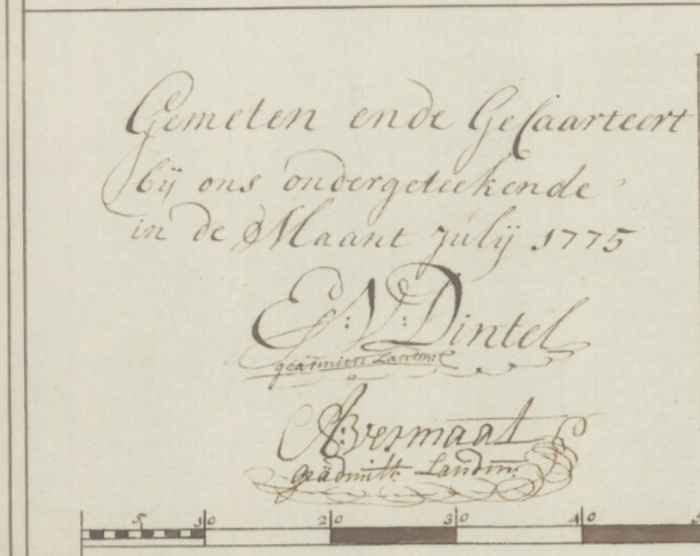 Gemeten ende Gecaarteert
bij ons ondergeteekende
in de Maant Julij 1775
E: V: Dintel
geadmitt: Landm:
Vermaat
geädmitt: Landm:
5 10 20 30 40